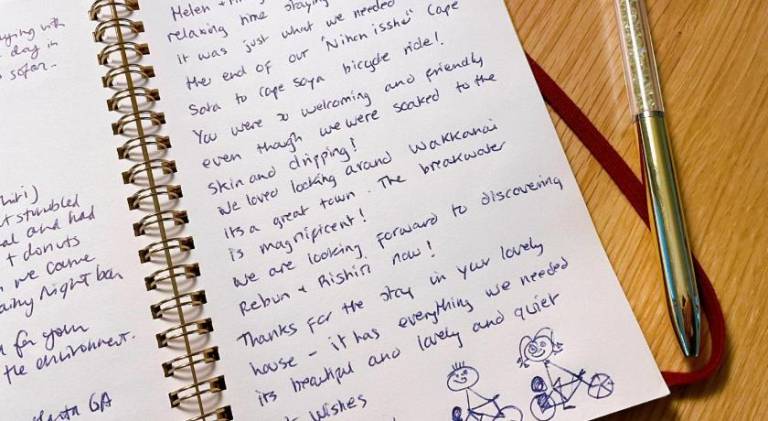 aying with
day in
so far.
hiri)
t stumbled
al and had
+ donuts
n we came
Night ban
for your
the environment.
GA
Helen +
relaxing time staying
it was just what we needed
the end of our "Nihon isshū" Cape
Sata to Cape Soya bicycle ride!
You were so welcoming and friendly
even though we were soaked to the
skin and dripping!
We loved looking around Wakkanai
its a great town. The breakwater
is magnificent!
We are looking forward to discovering
Rebun + Rishiri now!
Thanks for the stay in your lovely
house - it has everything we needed
its beautiful and lovely and quiet
Wishes